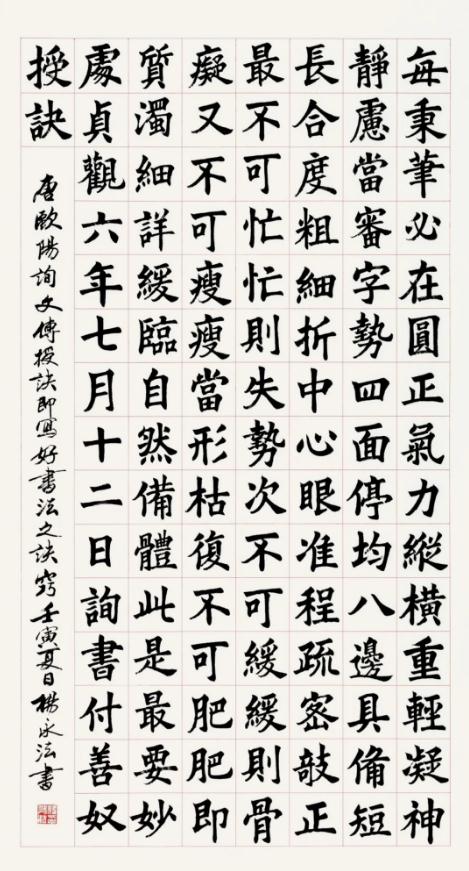 每秉筆必在圓正氣力縱橫重輕凝神
靜慮當審字勢四面停均八邊具備短
長合度粗細折中心眼准程疏密敧正
最不可忙忙則失勢次不可緩緩則骨
癡又不可瘦瘦當形枯復不可肥肥即
質濁細詳緩臨自然備體此是最要妙
處貞觀六年七月十二日詢書付善奴
授訣
唐歐陽詢文傳授訣即寫好書法之訣竅壬寅夏日楊永法書